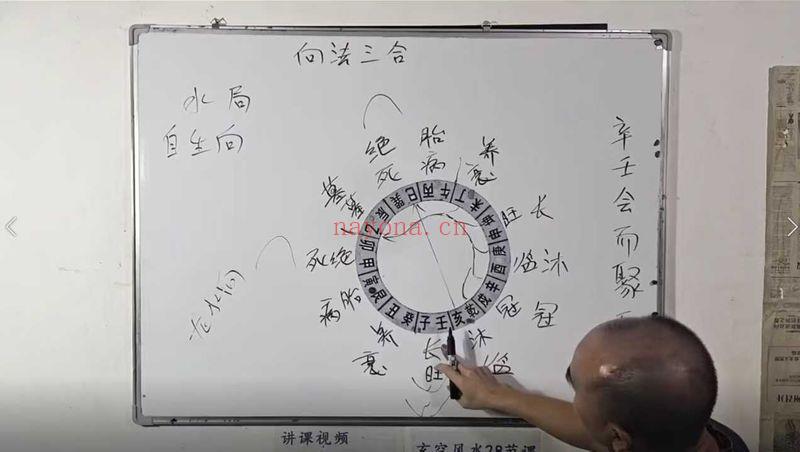 向法三合
水局
自生向
绝 胎 养
死 病 衰
旺 长
临 沐
冠 冠
沐
临
长
旺
养
衰
胎
病
绝
死
墓
辛壬会而聚
巽 巳 丙 午 丁 未 坤 申 庚 酉 辛 戌 乾 亥 壬 子 癸 丑 艮 寅 甲 卯 乙 辰
nayona.cn
讲课视频
玄空风水28节课